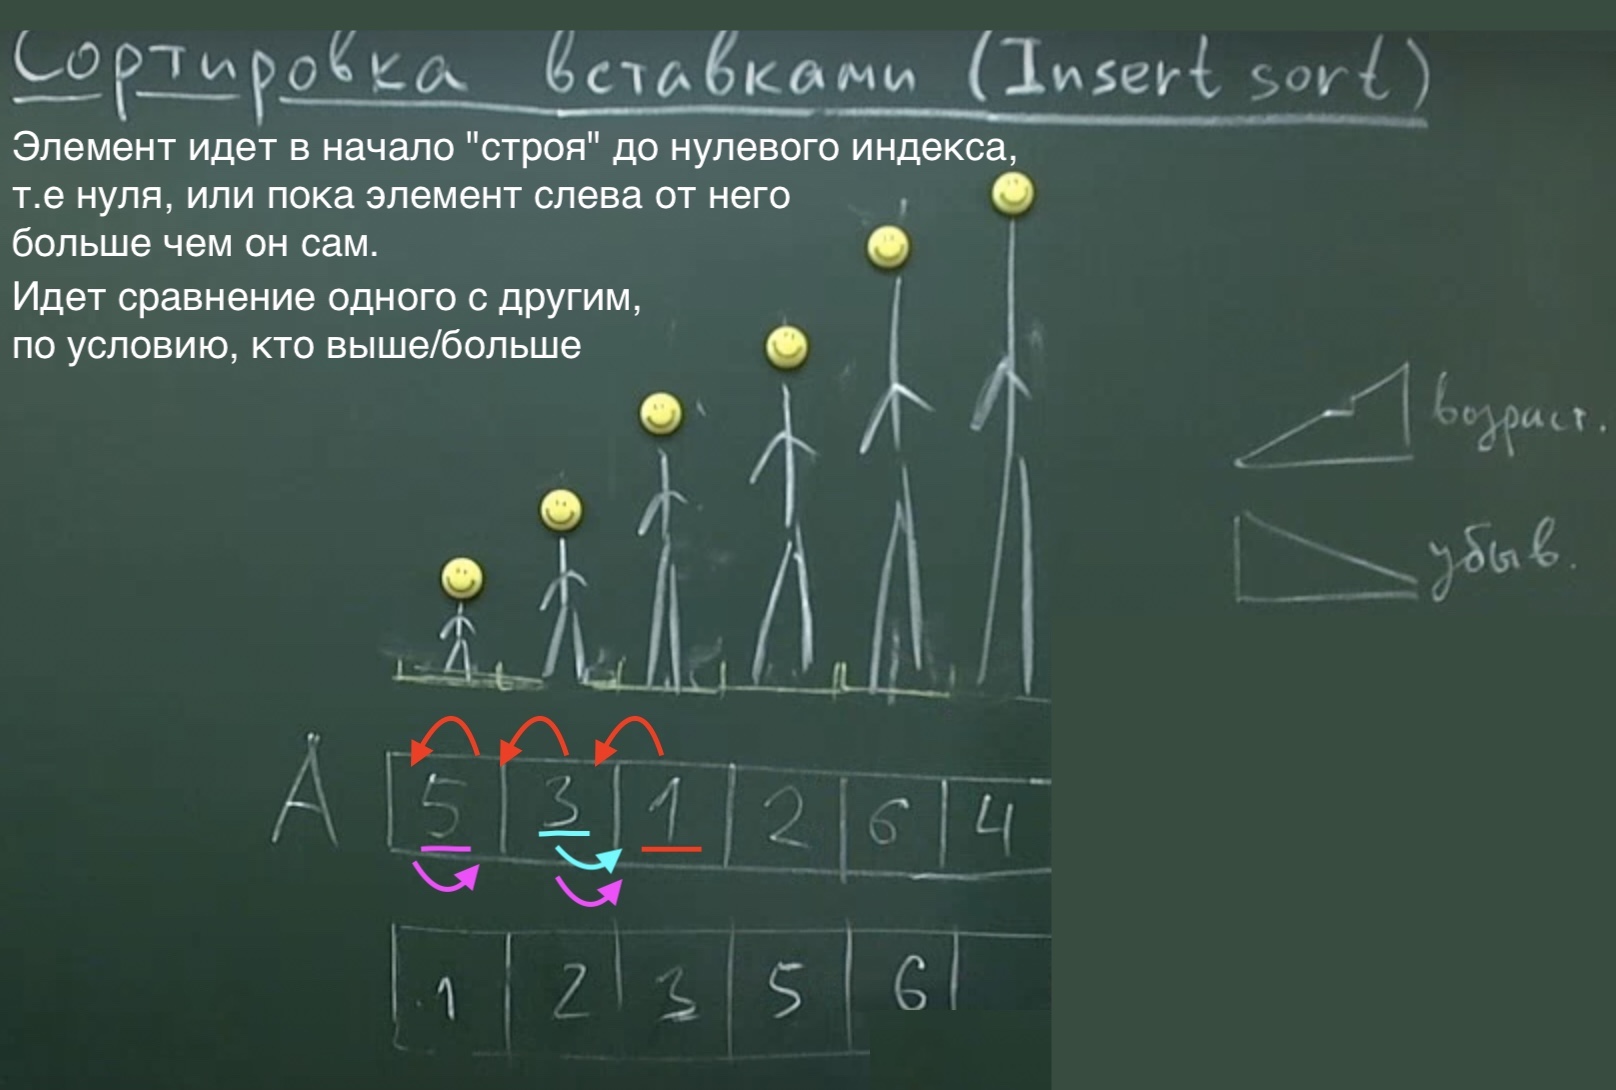 Сортировка вставками (Insert sort)
Элемент идет в начало "строя" до нулевого индекса,
т.е нуля, или пока элемент слева от него
больше чем он сам.
Идет сравнение одного с другим,
по условию, кто выше/больше
возраст.
убыв.
A 5 3 1 2 6 4
1 2 3 5 6